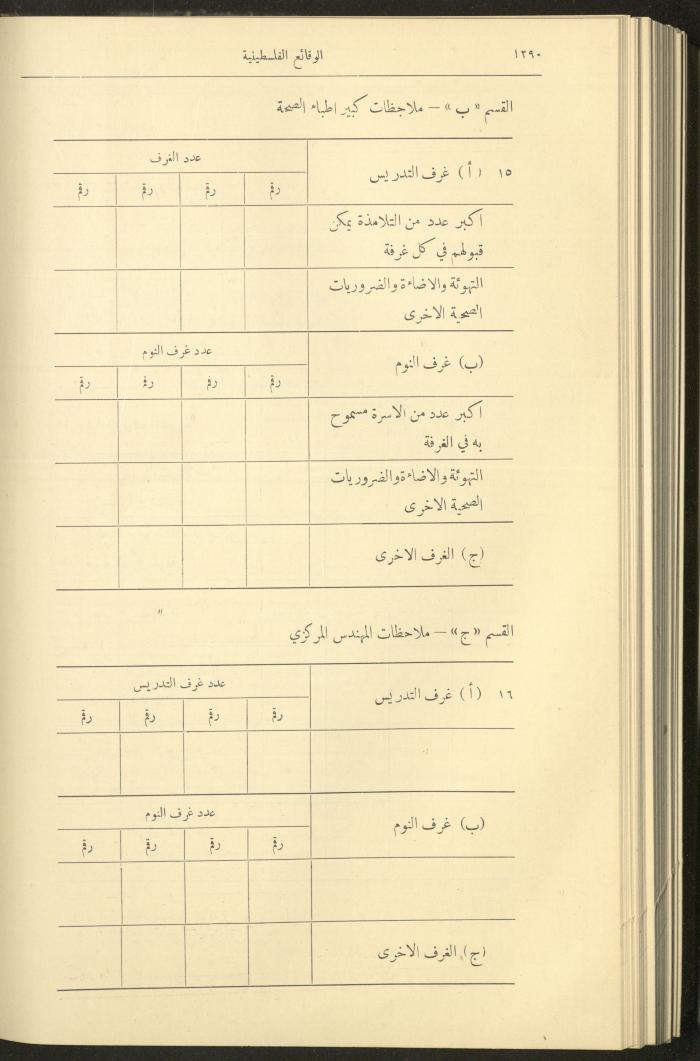 ١٢٩٠ الوقائع الفلسطينية
القسم «ب» — ملاحظات كبير اطباء الصحة
١٥ (أ) غرف التدريس
عدد الغرف
رقم رقم رقم رقم
اكبر عدد من التلامذة يمكن
قبولهم في كل غرفة
التهوئة والاضاءة والضروريات
الصحية الاخرى
(ب) غرف النوم
عدد غرف النوم
رقم رقم رقم رقم
اكبر عدد من الاسرة مسموح
به في الغرفة
التهوئة والاضاءة والضروريات
الصحية الاخرى
(ج) الغرف الاخرى
القسم «ج» — ملاحظات المهندس المركزي
١٦ (أ) غرف التدريس
عدد غرف التدريس
رقم رقم رقم رقم
(ب) غرف النوم
عدد غرف النوم
رقم رقم رقم رقم
(ج) الغرف الاخرى